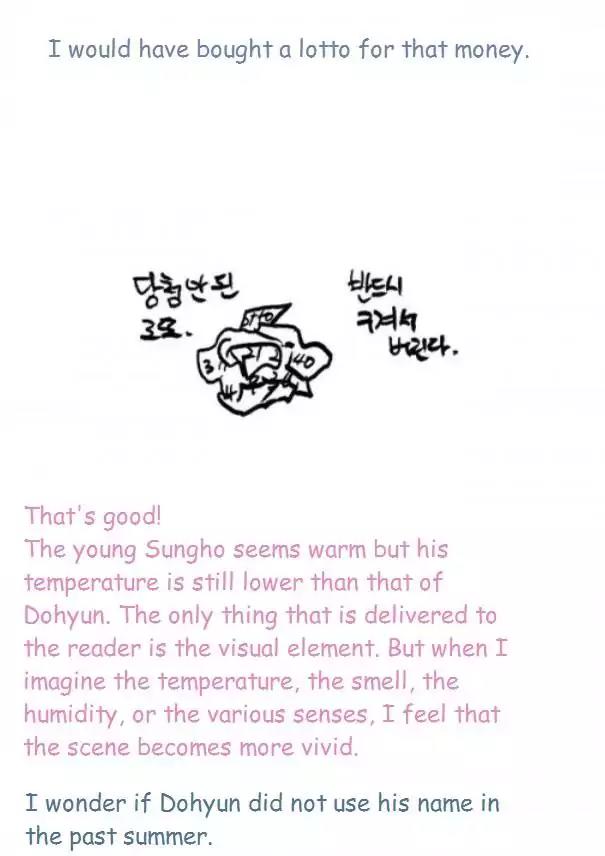 I would have bought a lotto for that money.
당첨 안 된
로또.
반드시
구겨서
버린다.
otto
3
21
2
40
That's good!
The young Sungho seems warm but his
temperature is still lower than that of
Dohyun. The only thing that is delivered to
the reader is the visual element. But when I
imagine the temperature, the smell, the
humidity, or the various senses, I feel that
the scene becomes more vivid.
I wonder if Dohyun did not use his name in
the past summer.